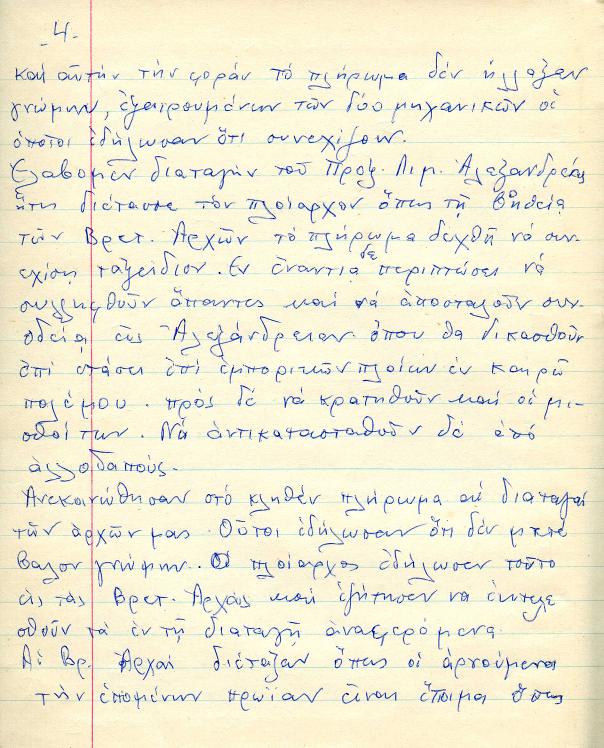 -4-
καὶ αὐτὴν τὴν φορὰν τὸ πλήρωμα δὲν ἤλλαξεν
γνώμην, ἐξαιρουμένων τῶν δύο μηχανικῶν οἱ
ὁποῖοι ἐδήλωσαν ὅτι συνεχίζουν.
Ἐλάβομεν διαταγὴν τοῦ Προξ. Λιμ. Ἀλεξανδρείας
ἥτις διέτασσε τὸν πλοίαρχον ὅπως τῇ βοηθείᾳ
τῶν Βρετ. Ἀρχῶν τὸ πλήρωμα δεχθῇ νὰ συν-
εχίσῃ ταξείδιον. Ἐν ἐναντίᾳ δὲ περιπτώσει νὰ
συλληφθοῦν ἅπαντες καὶ νὰ ἀποσταλοῦν συν-
οδείᾳ εἰς Ἀλεξάνδρειαν ὅπου θὰ δικασθοῦν
ἐπὶ στάσει ἐπὶ ἐμπορικῶν πλοίων ἐν καιρῷ
πολέμου. πρὸς δὲ νὰ κρατηθοῦν καὶ οἱ μι-
σθοί των. Νὰ ἀντικατασταθοῦν δὲ ἀπὸ
ἀλλοδαπούς.
Ἀνεκοινώθησαν στὸ κληθὲν πλήρωμα αἱ διαταγαὶ
τῶν ἀρχῶν μας. Οὗτοι ἐδήλωσαν ὅτι δὲν μετέ
βαλον γνώμην. Ὁ πλοίαρχος ἐδήλωσεν τοῦτο
εἰς τὰς Βρετ. Ἀρχὰς καὶ ἐζήτησεν νὰ ἐκτελε
σθοῦν τὰ ἐν τῇ διαταγῇ ἀναφερόμενα.
Αἱ Βρ. Ἀρχαὶ διέταξαν ὅπως οἱ ἀρνούμενοι
τὴν ἑπομένην πρωΐαν εἶναι ἕτοιμοι ὅπως